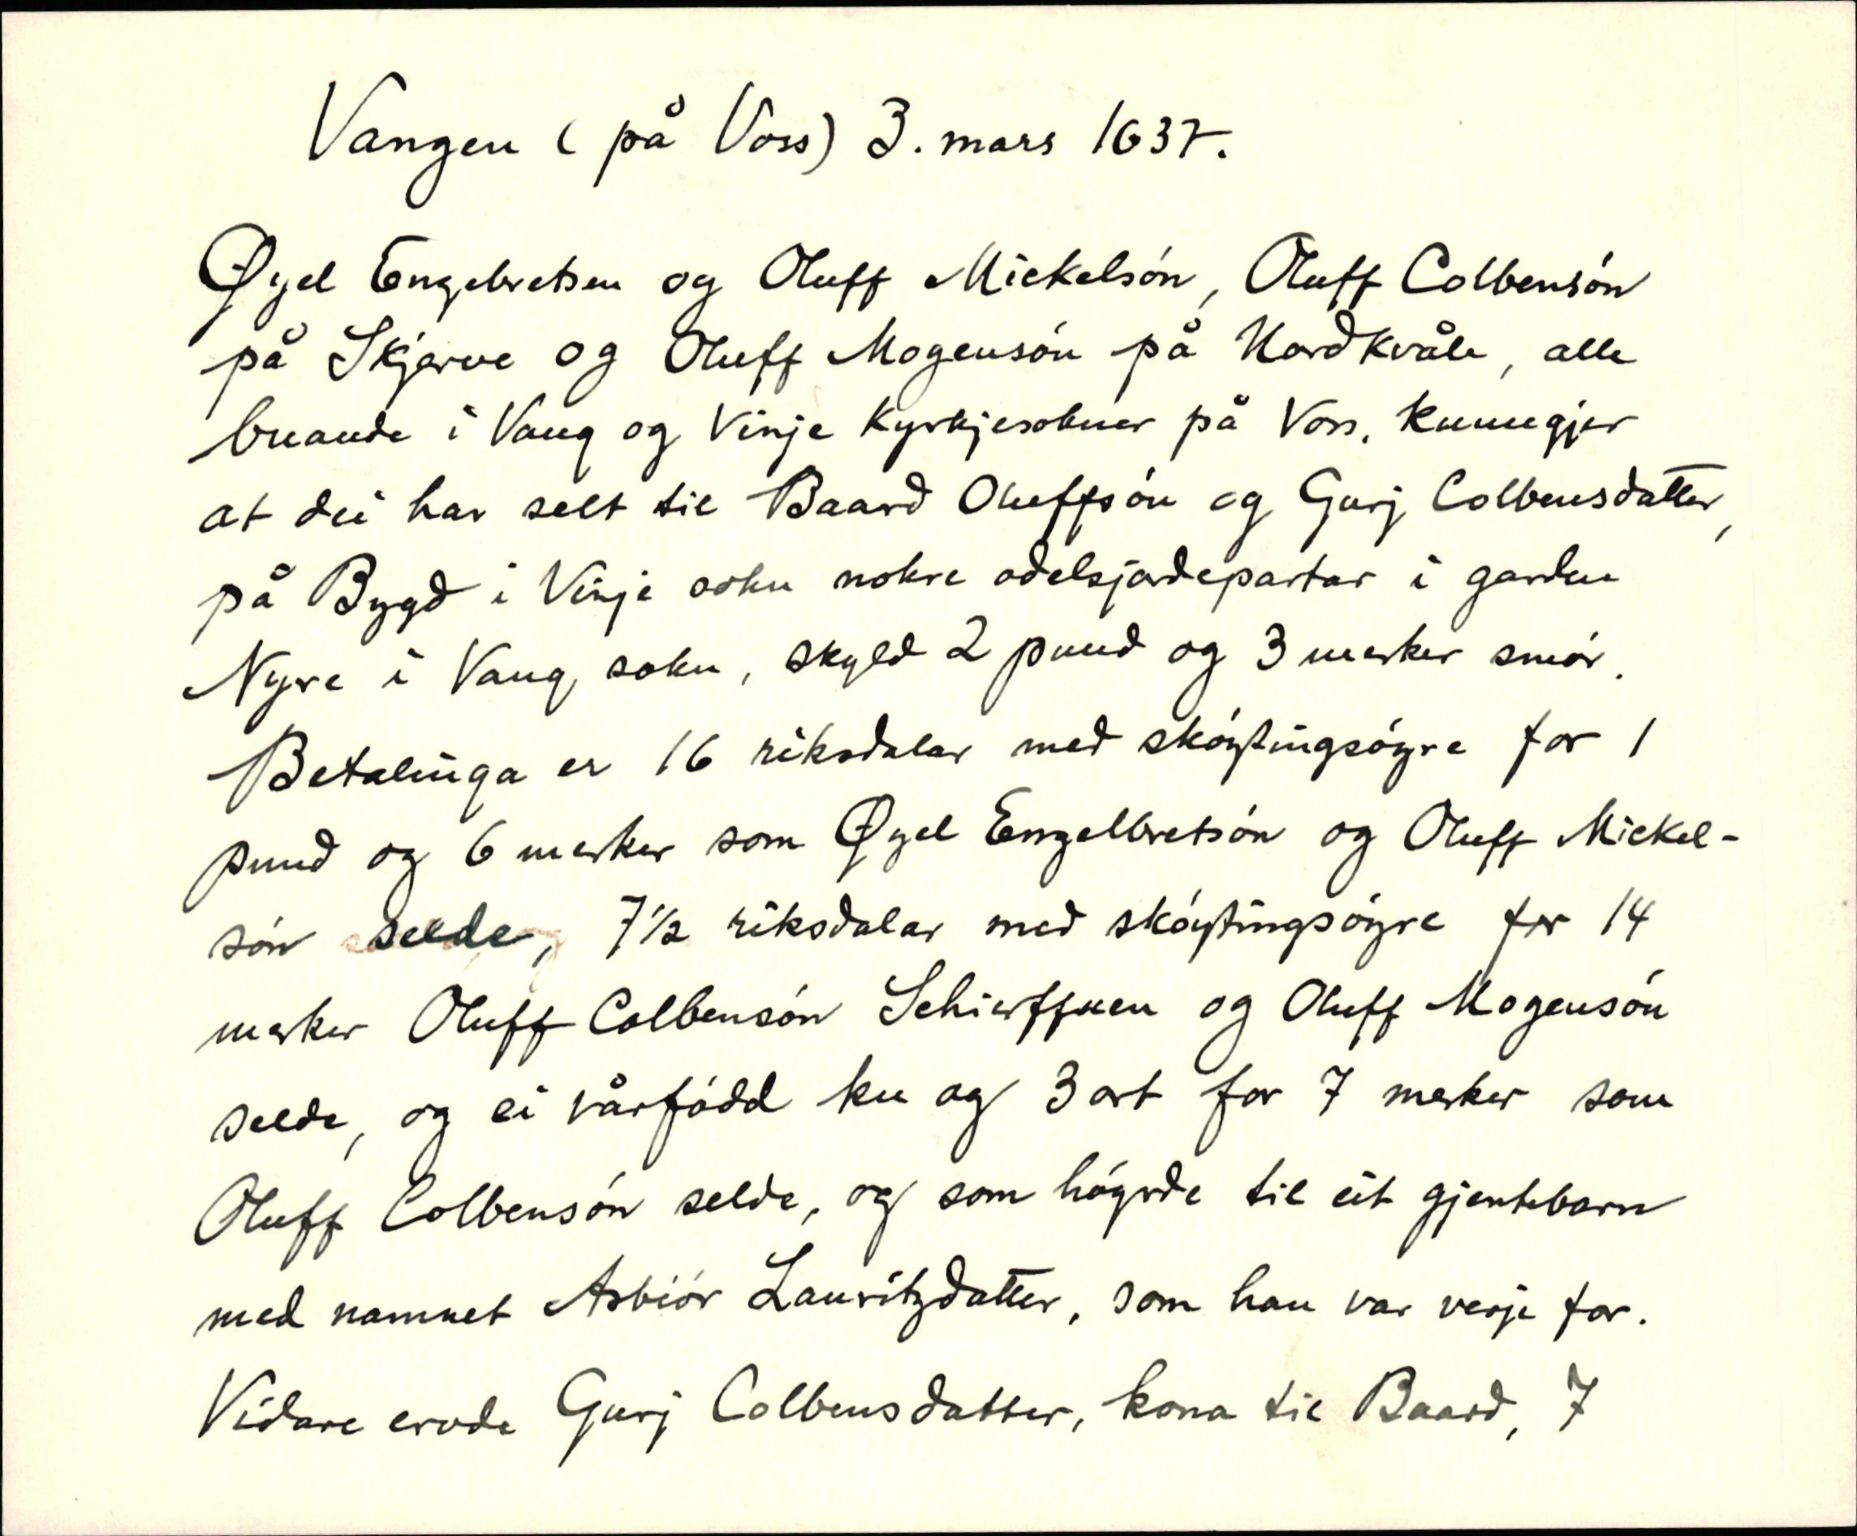 Vangen (på Voss) 3. mars 1637.
Øyel Engebretsen og Oluff Mickelsón, Oluff Colbensón
på Skjerve og Oluff Mogensón på Nordkvåle, alle
buande i Vang og Vinje kyrkjesokner på Voss, kunngjer
at dei har selt til Baard Oluffsón og Gurj Colbensdatter,
på Bygd i Vinje sokn nokre odelsjordepartar i garden
Nyre i Vang sokn, skyld 2 pund og 3 merker smór.
Betalinga er 16 riksdalar med skóytingsóyre for 1
pund og 6 merker som Øyel Engelbretsón og Oluff Mickel-
són selde, 7½ riksdalar med skóytingsóyre for 14
merker Oluff Colbensón Schierffuen og Oluff Mogensón
selde, og ei vårfódd ku og 3 ort for 7 merker som
Oluff Colbensón selde, og som hóyrde til eit gjentebarn
med namnet Asbiór Lauritzdatter, som han var verje for.
Vidare ervde Gurj Colbensdatter, kona til Baard, 7